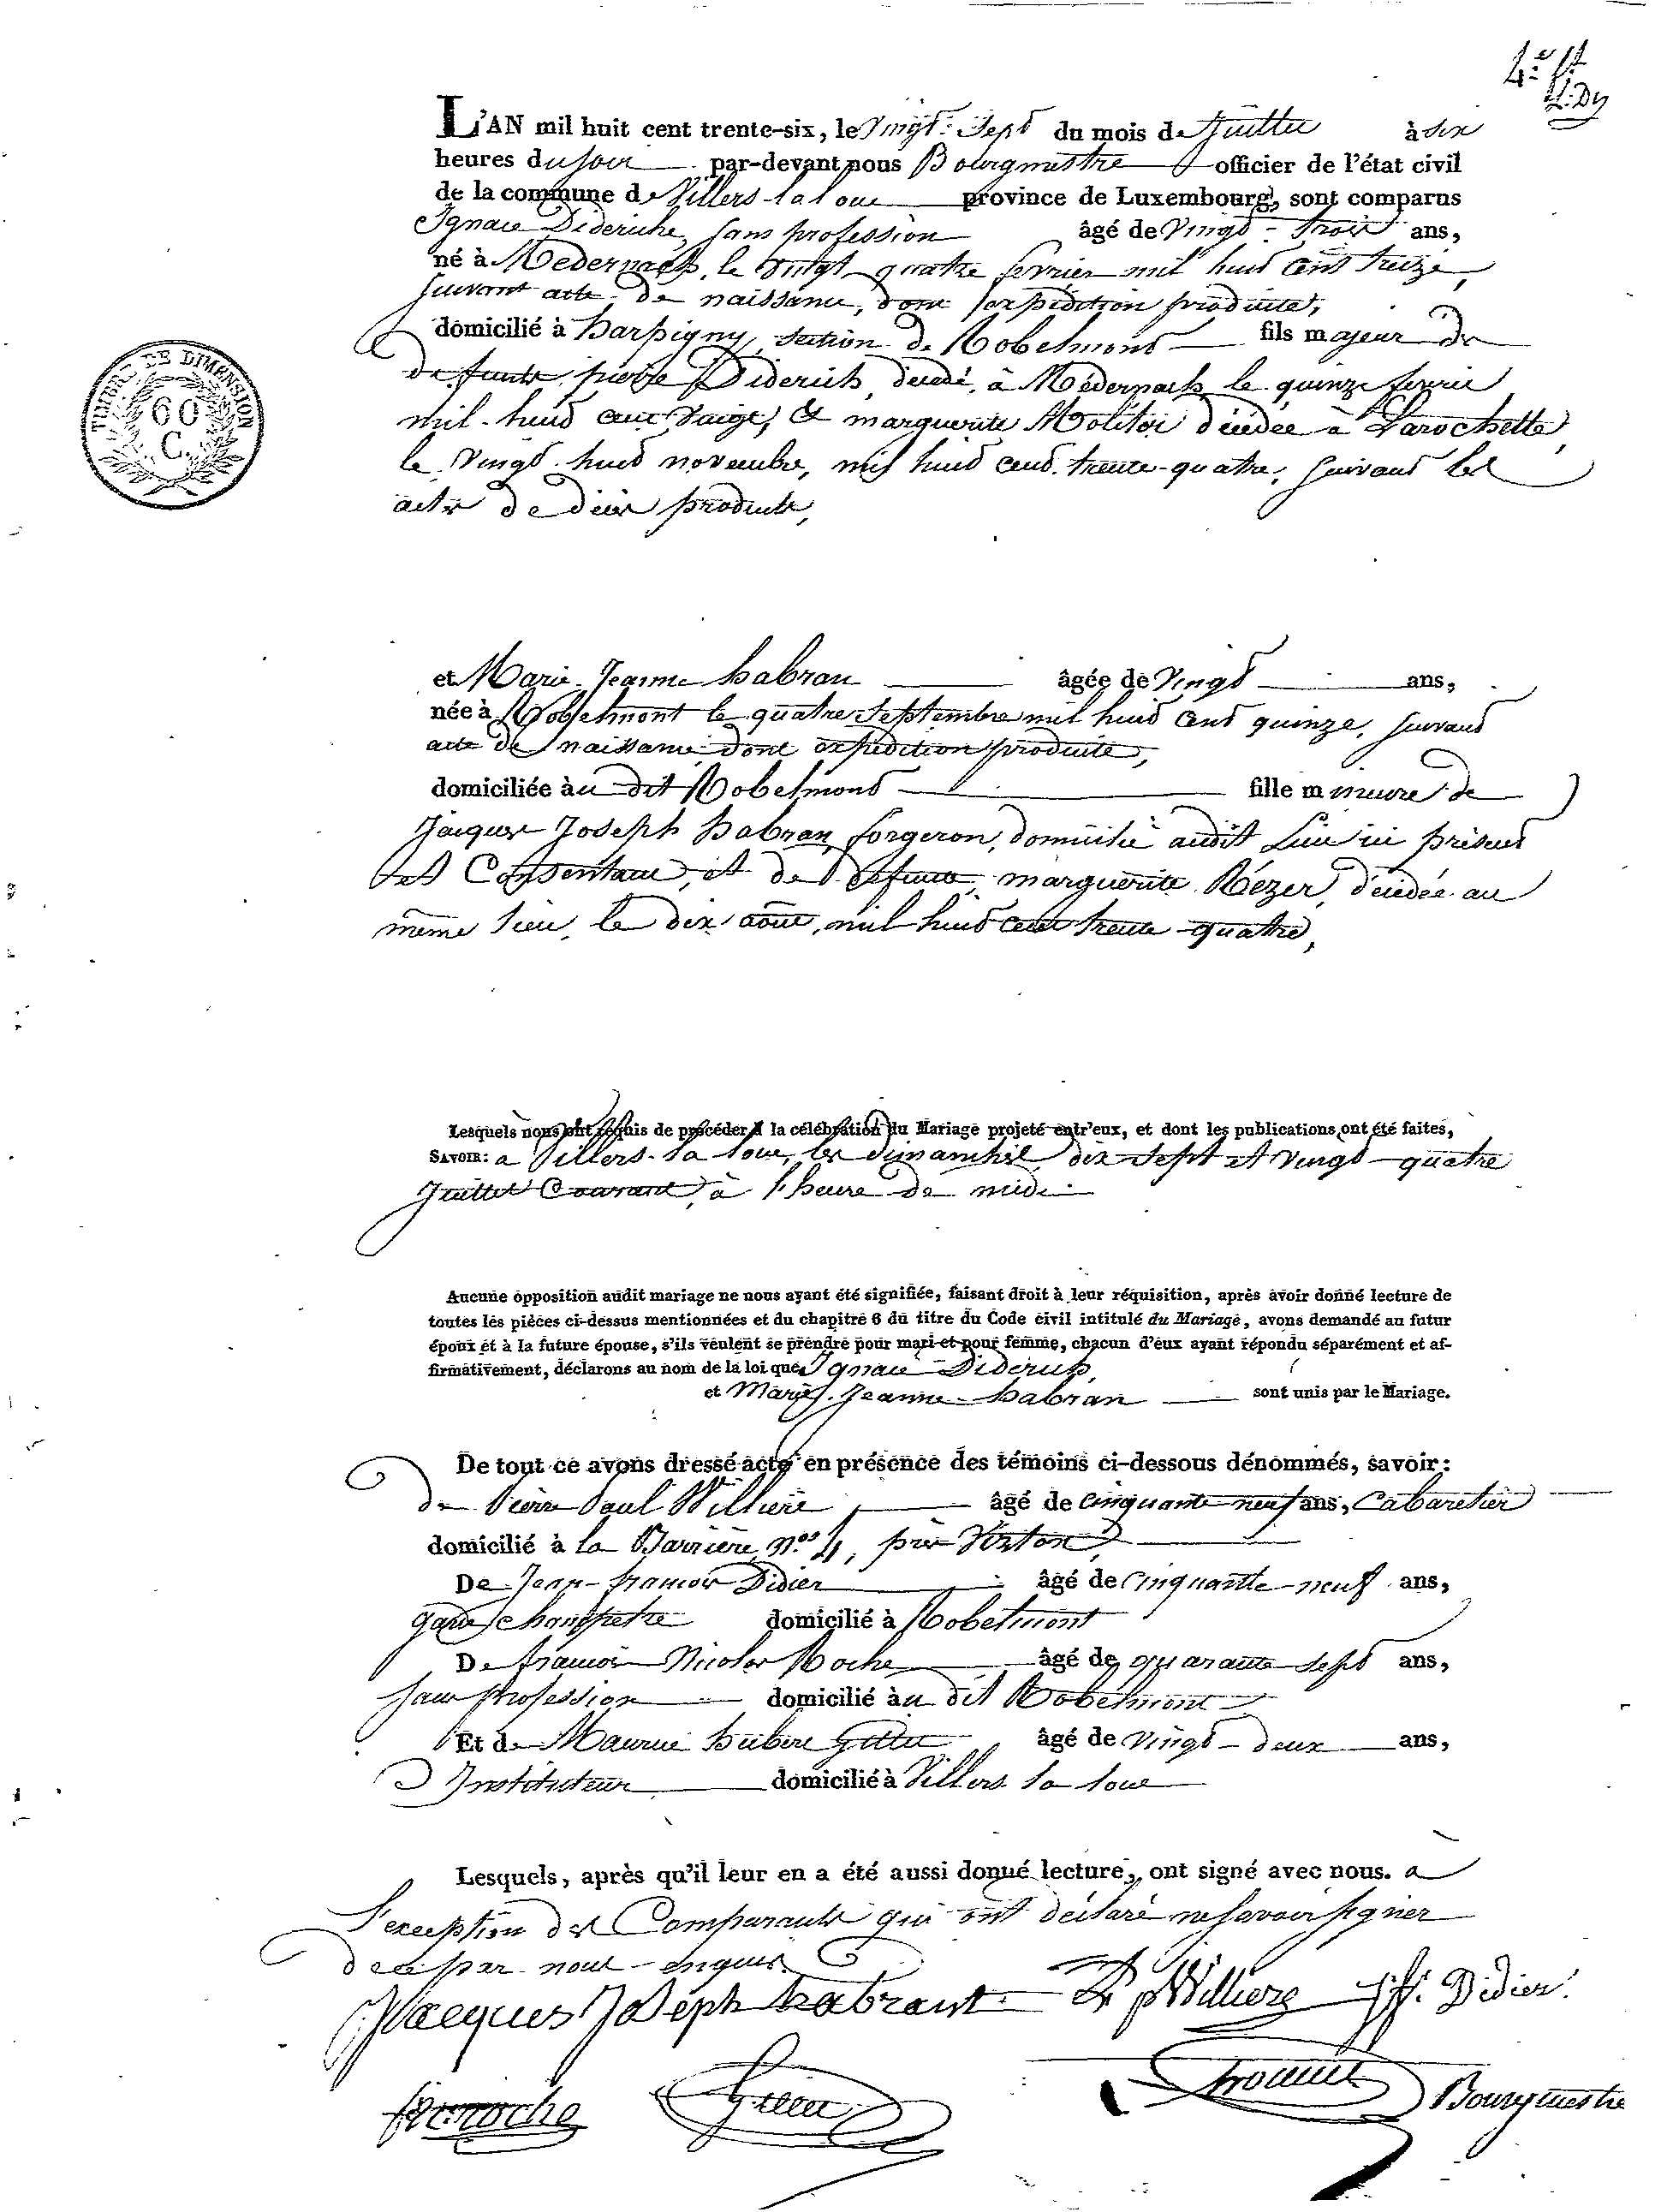 4.e f.t
TIMBRE DE DIMENSION
60
C.
L'AN mil huit cent trente-six, le Vingt-Sept du mois de Juillet à six
heures du soir par-devant nous Bourgmestre officier de l'état civil
de la commune de Villers-la loue province de Luxembourg, sont comparus
Ignace Dideriche, sans profession âgé de Vingt-trois ans,
né à Medernach, le vingt quatre fevrier mil huit cent treize,
suivant acte de naissance, dont l'expédition produite,
domicilié à harpigny, section de Robelmont fils majeur de
defunts pierre Diderich, decedé à Médernach le quinze fevrier
mil-huit cent vingt, et marguerite Molitor décédée à Larochette,
le Vingt-huit novembre, mil huit cent trente-quatre, suivant les
actes de décès produits,
et Marie-Jeanne habran âgée de Vingt ans,
née à Robelmont le quatre Septembre mil huit cent quinze, suivant
acte de naissance dont expédition produite,
domiciliée au dit Robelmont fille mineure de
Jacques Joseph habran forgeron, domicilié audit Lieu ici présent
et Consentant, et de defunte marguerite Rézer, décédée au
même lieu, le dix août, mil huit cent trente-quatre,
Lesquels nous ont requis de procéder à la célébration du Mariage projeté entr'eux, et dont les publications ont été faites,
SAVOIR: a Villers-la loue, les dimanches dix Sept et vingt-quatre
Juillet Courant, à l'heure de midi
Aucune opposition audit mariage ne nous ayant été signifiée, faisant droit à leur réquisition, après avoir donné lecture de
toutes les pièces ci-dessus mentionnées et du chapitre 6 du titre du Code civil intitulé du Mariage, avons demandé au futur
époux et à la future épouse, s'ils veulent se prendre pour mari et pour femme, chacun d'eux ayant répondu séparément et af-
firmativement, déclarons au nom de la loi que Ignace Diderich,
et Marie-Jeanne-habran sont unis par le Mariage.
De tout ce avons dressé acte en présence des témoins ci-dessous dénommés, savoir:
de Pierre Paul Willière âgé de Cinquante-neuf ans, Cabaretier
domicilié à la Barrière, N.os 4, près Virton,
De Jean-françois Didier âgé de Cinquante-neuf ans,
garde champetre domicilié à Robelmont
De françois Nicolas Roche âgé de quarante-sept ans,
sans profession domicilié au dit Robelmont
Et de Maurice hubert Gillet âgé de vingt-deux ans,
Instituteur domicilié à Villers la loue
Lesquels, après qu'il leur en a été aussi donné lecture, ont signé avec nous. à
l'exception des Comparants qui ont déclaré ne savoir signer
de ce par nous enquis.
Jacques Joseph habrant P pWilliere J.f. Didier
fnroche Gillet Bourgmestre